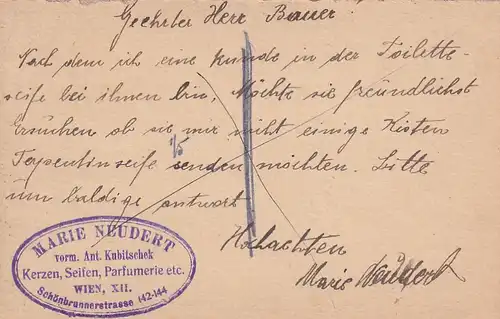 Geehrter Herr Bauer.
Nach dem ich eine kunde in der Toilette-
seife bei ihnen bin, Möchte sie freundlichst
Ersuchen ob sie mir nicht einige Kisten
1/5
Terpentinseife senden möchten. Bitte
um baldige antwort
Hochachten
Marie Neudert
MARIE NEUDERT
vorm. Ant. Kubitschek
Kerzen, Seifen, Parfumerie etc.
WIEN, XII.
Schönbrunnerstrasse 142-144